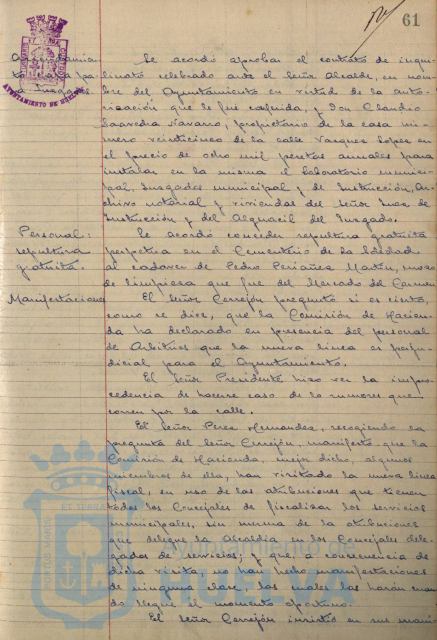 61
Se acordó aprobar el contrato de inqui-
linato celebrado ante el Señor Alcalde, en nom-
bre del Ayuntamiento en virtud de la auto-
rización que le fué conferida, y Don Claudio
Saavedra Navarro, propietario de la casa nú-
mero veinticinco de la calle Vazquez Lopez en
el precio de ocho mil pesetas anuales para
instalar en la misma el laboratorio munici-
pal, Juzgados municipal y de Instrucción, Ar-
chivo notarial y viviendas del Señor Juez de
Instrucción y del Alguacil del Juzgado.
Personal:
sepultura
gratuita.
Se acordó conceder sepultura gratuita
perpetua en el Cementerio de la Soledad
al cadaver de Pedro Periañez Martin, mozo
de limpieza que fué del Mercado del Carmen
Manifestaciones
El Señor Cerrejón preguntó si es cierto,
como se dice, que la Comisión de Hacien-
da ha declarado en presencia del personal
de Arbitrios que la nueva linea es perju-
dicial para el Ayuntamiento.
El Señor Presidente hizo ver la impro-
cedencia de hacerse caso de los rumores que
corren por la calle.
El Señor Perez Hernandez, recogiendo la
pregunta del Señor Cerrejón, manifestó que la
Comisión de Hacienda, mejor dicho, algunos
miembros de ella, han visitado la nueva linea
fiscal, en uso de las atribuciones que tienen
todos los Concejales de fiscalizar los servicios
municipales, sin merma de las atribuciones
que delegue la Alcaldía en los Concejales dele-
gados de servicios; y que, a consecuencia de
dicha visita, no han hecho manifestaciones
de ninguna clase, las cuales las harán cuan-
do llegue el momento oportuno.
El Señor Cerrejón insistió en sus mani-
AYUNTAMIENTO DE HUELVA
HUELVA